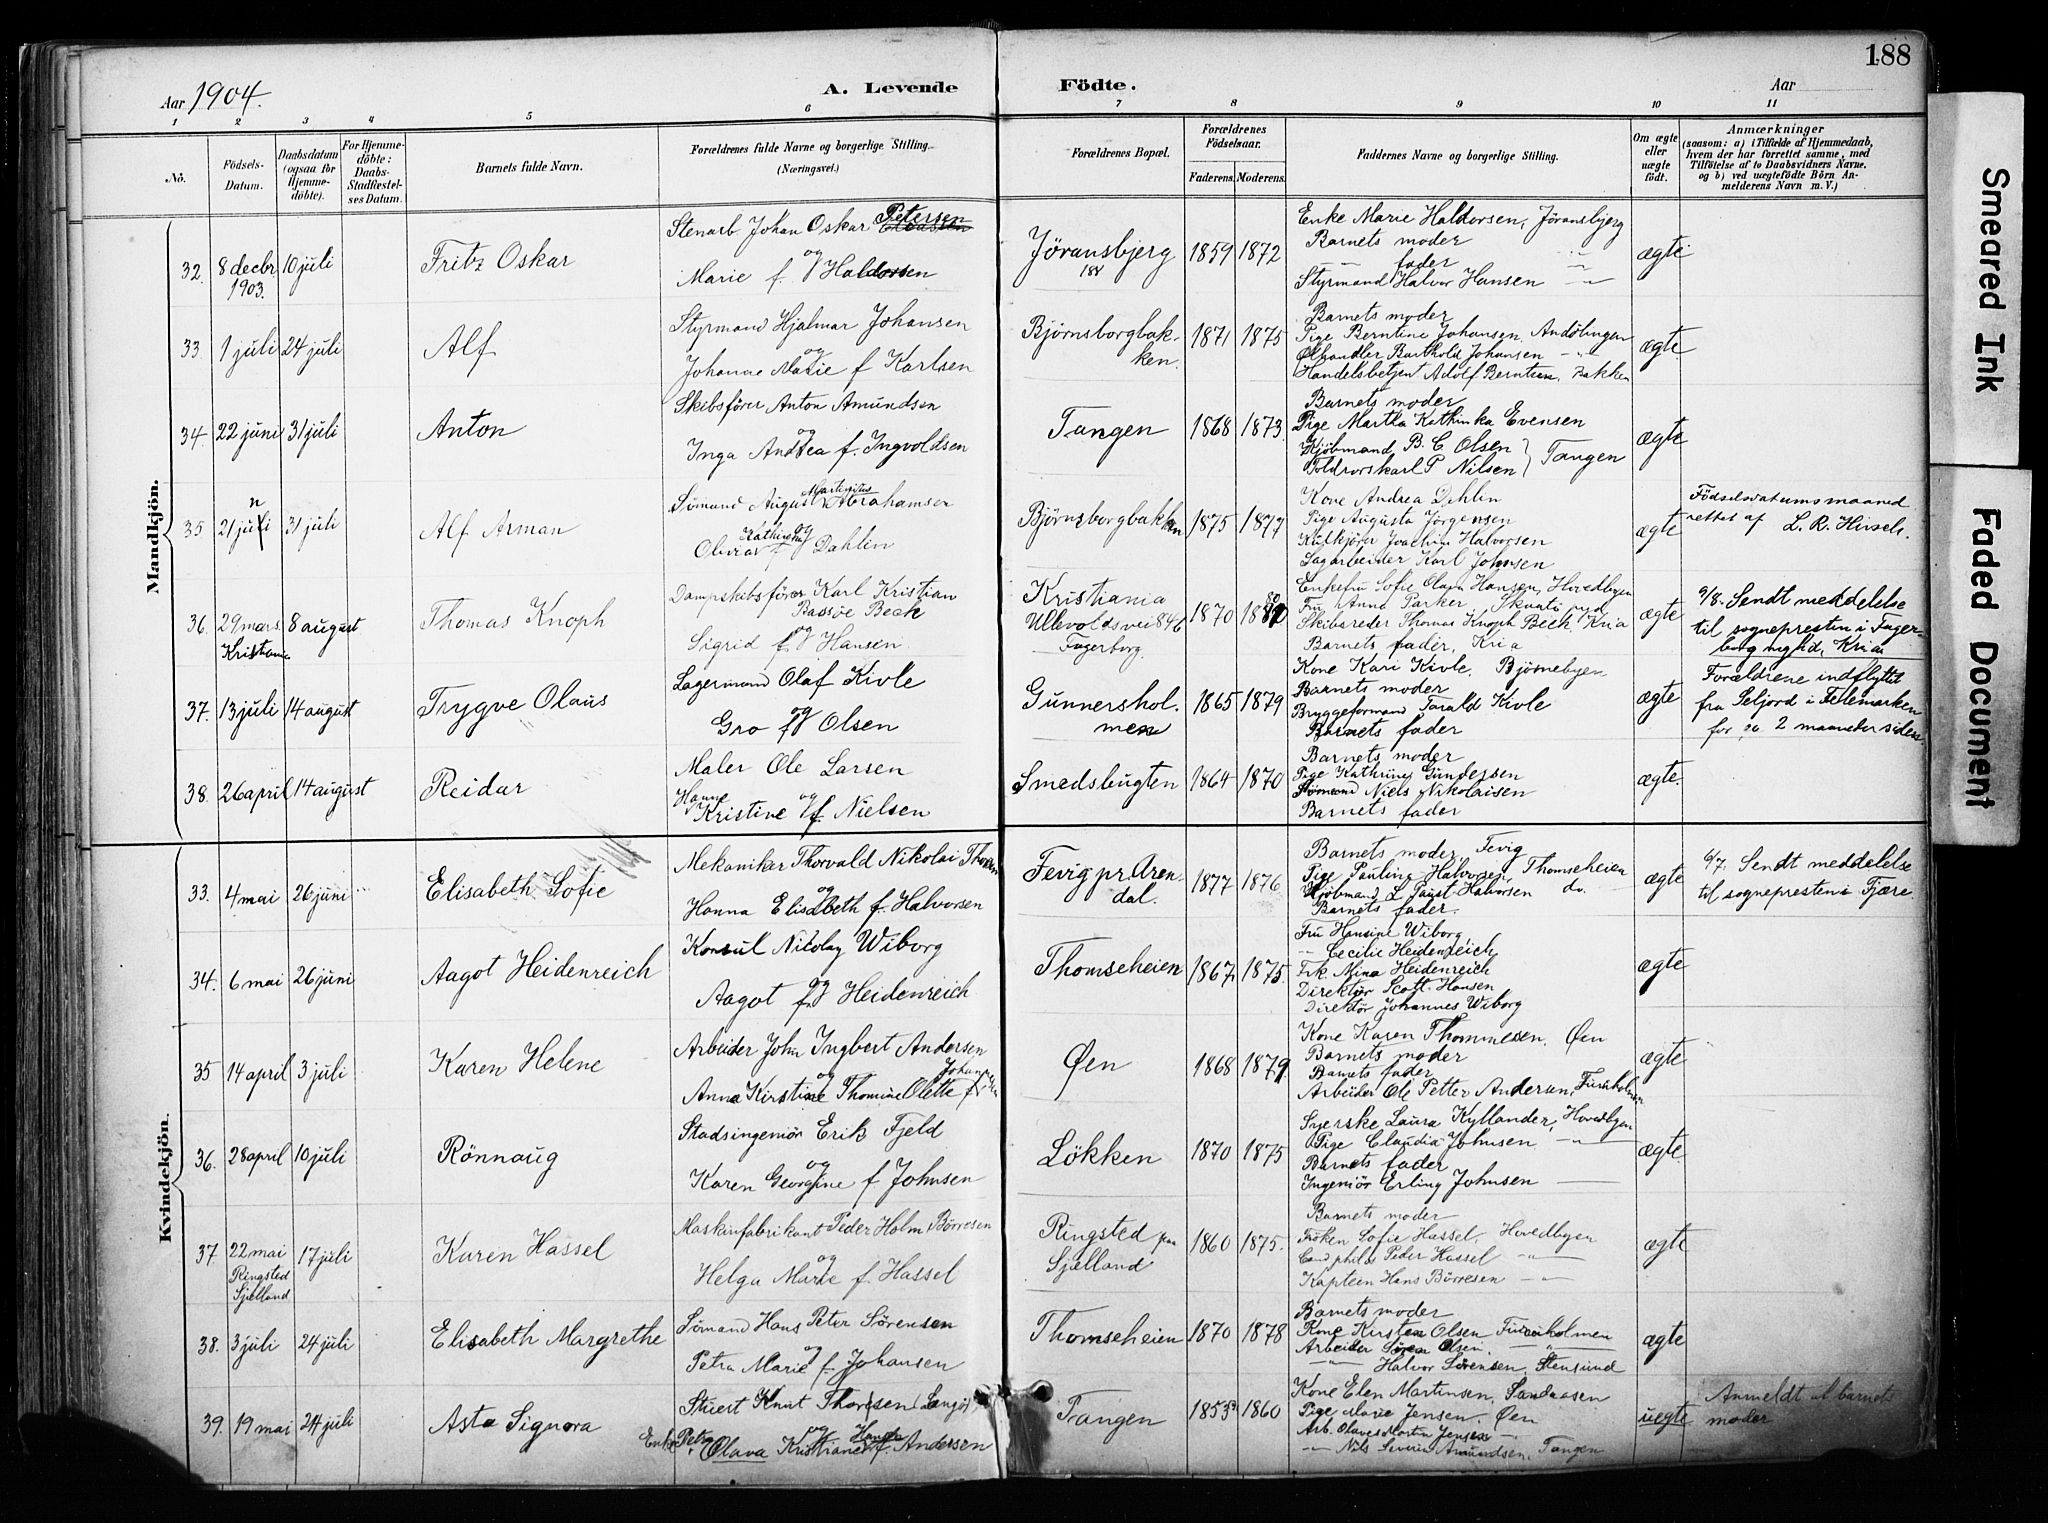 188
Aar 1904.
A. Levende Födte.
Aar
1 2 3 4 5 6 7 8 9 10 11
No.
Födsels-Datum.
Daabsdatum (ogsaa for Hjemme-döbte).
For Hjemme-döbte: Daabs-Stadfæstel-ses Datum.
Barnets fulde Navn.
Forældrenes fulde Navne og borgerlige Stilling. (Næringsvei.)
Forældrenes Bopæl.
Forældrenes Födselsaar.
Faderens. Moderens.
Faddernes Navne og borgerlige Stilling.
Om ægte eller uægte födt.
Anmærkninger
(saasom: a) i Tilfælde af Hjemmedaab, hvem der har forrettet samme, med Tilföielse af to Daabsvidners Navne. og b) ved uægtefödte Börn Anmelderens Navn m. V.)
Mandkjön.
32. 8 decbr 1903. 10 juli
Fritz Oskar
Stenarb Johan Oskar Petersen
og
Marie f. Haldorsen
Jöransbjerg
184
1859 1872
Enke Marie Haldorsen, Jöransbjerg
Barnets moder
— fader
Styrmand Halvor Hansen
ægte
33. 1 juli 24 juli
Alf
Styrmand Hjalmar Johansen
og
Johanne Marie f Karlsen
Bjørnsborgbakken.
1871 1875
Barnets moder
Pige Berntine Johansen, Andöbugen
Ölhandler Barthold Johansen
Handelsbetjent Adolf Berntsen, Bakken
ægte
34. 22 juni 31 juli
Anton
Skibsfören Anton Amundsen
og
Inga Andrea f. Ingvoldsen
Tangen
1868 1873
Barnets moder
Pige Martha Kathinka Evensen
Kjöbmand B. C. Olsen
Toldrorskarl P Nilsen } Tangen
ægte
35 21 juni 31 juli
Alf Arman
Sömand August Martinius Abrahamsen
og
Olivia Kathinka f Dahlin
Bjørnsborgbakken
1875 1877
Kone Andrea Dehlin
Pige Augusta Jörgensen
Kulkjörer Joachim Halvorsen
Sagarbeider Karl Johnsen
ægte
Födselsdatums maaned
rettet af L. R. Hirsch.
36. 29 mars Kristiania 8 august
Thomas Knoph
Dampskibsförer Karl Kristian
Bassöe Beck
og
Sigrid f. Hansen.
Kristiania
Ullevoldsvei 84b
Fagerborg.
1870 1880
Enkefru Sofie Olava Hansen, Hovedbyen
Fru Anna Parker
Skibsreder Thomas Knoph Beck, Kria
Barnets fader, Kria
ægte
9/8. Sendt meddelelse
til sognepresten i Fager-
borg meghd, Kria
37. 13 juli 14 august
Trygve Olaus
Lagermand Olaf Kivle
og
Gro f Olsen
Gunnershol-
men
1865 1879
Kone Kari Kivle, Björnebyen
Barnets moder
Bryggeformand Tarald Kivle
Barnets fader
ægte
Forældrene indflyttet
fra Seljord i Telemarken
for ca. 2 maaneder siden.
38. 26 april 14 august
Reidar
Maler Ole Larsen
og
Hanne Kristine f. Nielsen
Smedsbugten
1864 1870
Barnets moder
Pige Kathrine Gundersen
Sömand Niels Nikolaisen
Barnets fader
ægte.
Kvindekjön.
33. 4 mai 26 juni
Elisabeth Sofie
Mekaniker Thorvald Nikolai
og
Hanna Elisabeth f. Halvorsen
Fevig pr. Aren-
dal.
1877 1876
Barnets moder, Fevig
Pige Pauline Halvorsen, Thomseheien
Kjöbmand L Paust Halvorsen do.
Barnets fader.
ægte
6/7. Sendt meddelelse
til sognepresten i Fjære.
34. 6 mai 26 juni
Aagot Heidenreich
Konsul Nicolay Wiborg
og
Aagot f. Heidenreich
Thomseheien
1867 1875
Fru Hansine Wiborg
— Cecilie Heidenreich
Frk. Mina Heidenreich
Direktör Scott Hansen
Direktör Johannes Wiborg
ægte
35 14 april 3 juli
Karen Helene
Arbeider John Ingbert Andersen
og
Anna Kirstine Thomine Olette f.
Øen
1868 1879
Kone Karen Thommesen. Øen
Barnets moder
Barnets fader
Arbeider Ole Petter Andersen, Furuholmen
ægte
36. 28 april 10 juli
Rönnaug
Stadsingeniör Erik Fjeld
og
Karen Georgine f. Johnsen
Lökken
1870 1875
Syerske Laura Kyllander, Hovedbyen
Pige Claudia Johnsen
Barnets fader
Ingeniör Erling Johnsen
ægte
37 22 mai Ringsted Sjælland 17 juli
Karen Hassel
Maskinfabrikant Peder Holm Börresen
og
Helga Marie f. Hassel
Ringsted paa
Sjælland
1860 1875.
Barnets moder
Fröken Sofie Hassel, Hovedbyen
Cand philos Peder Hassel
Kaptein Hans Börresen
ægte
38. 3 juli 24 juli
Elisabeth Margrethe
Sömand Hans Peter Sörensen
og
Petra Marie f. Johansen
Thomseheien
1870 1878
Barnets moder
Kone Kirsten Olsen Furuholmen
Arbeider Sören Olsen.
— Halvor Sörensen, Stensund
ægte
39. 19 mai 24 juli
Asta Signora
Stuert Knut Thoresen (Langö)
og
Enke Petra Olava Kristiane f. Andersen
Tangen
1853 1860
Kone Elen Martinsen, Sandaasen
Pige Marie Jensen Øen
Arb. Olaves Martin Jensen
— Nils Severin Amundsen, Tangen
uegte
Anmeldt af barnets
moder
Smeared Ink
Faded Document